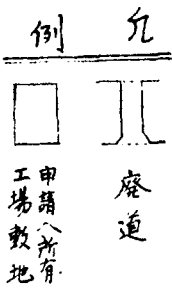 凡例
廃道
申請人所有
工場敷地